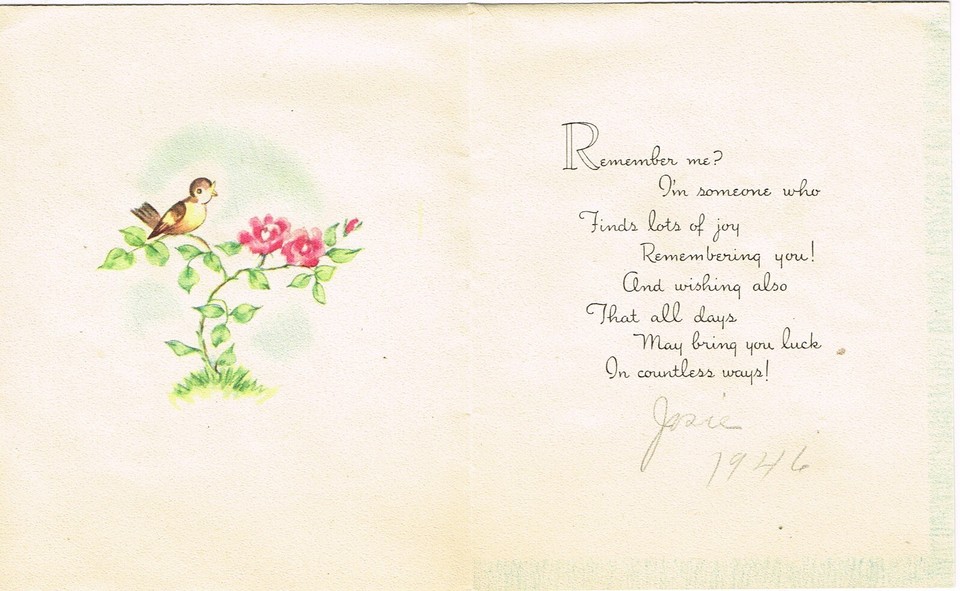 Remember me?
I'm someone who
Finds lots of joy
Remembering you!
And wishing also
That all days
May bring you luck
In countless ways!
Josie
1946